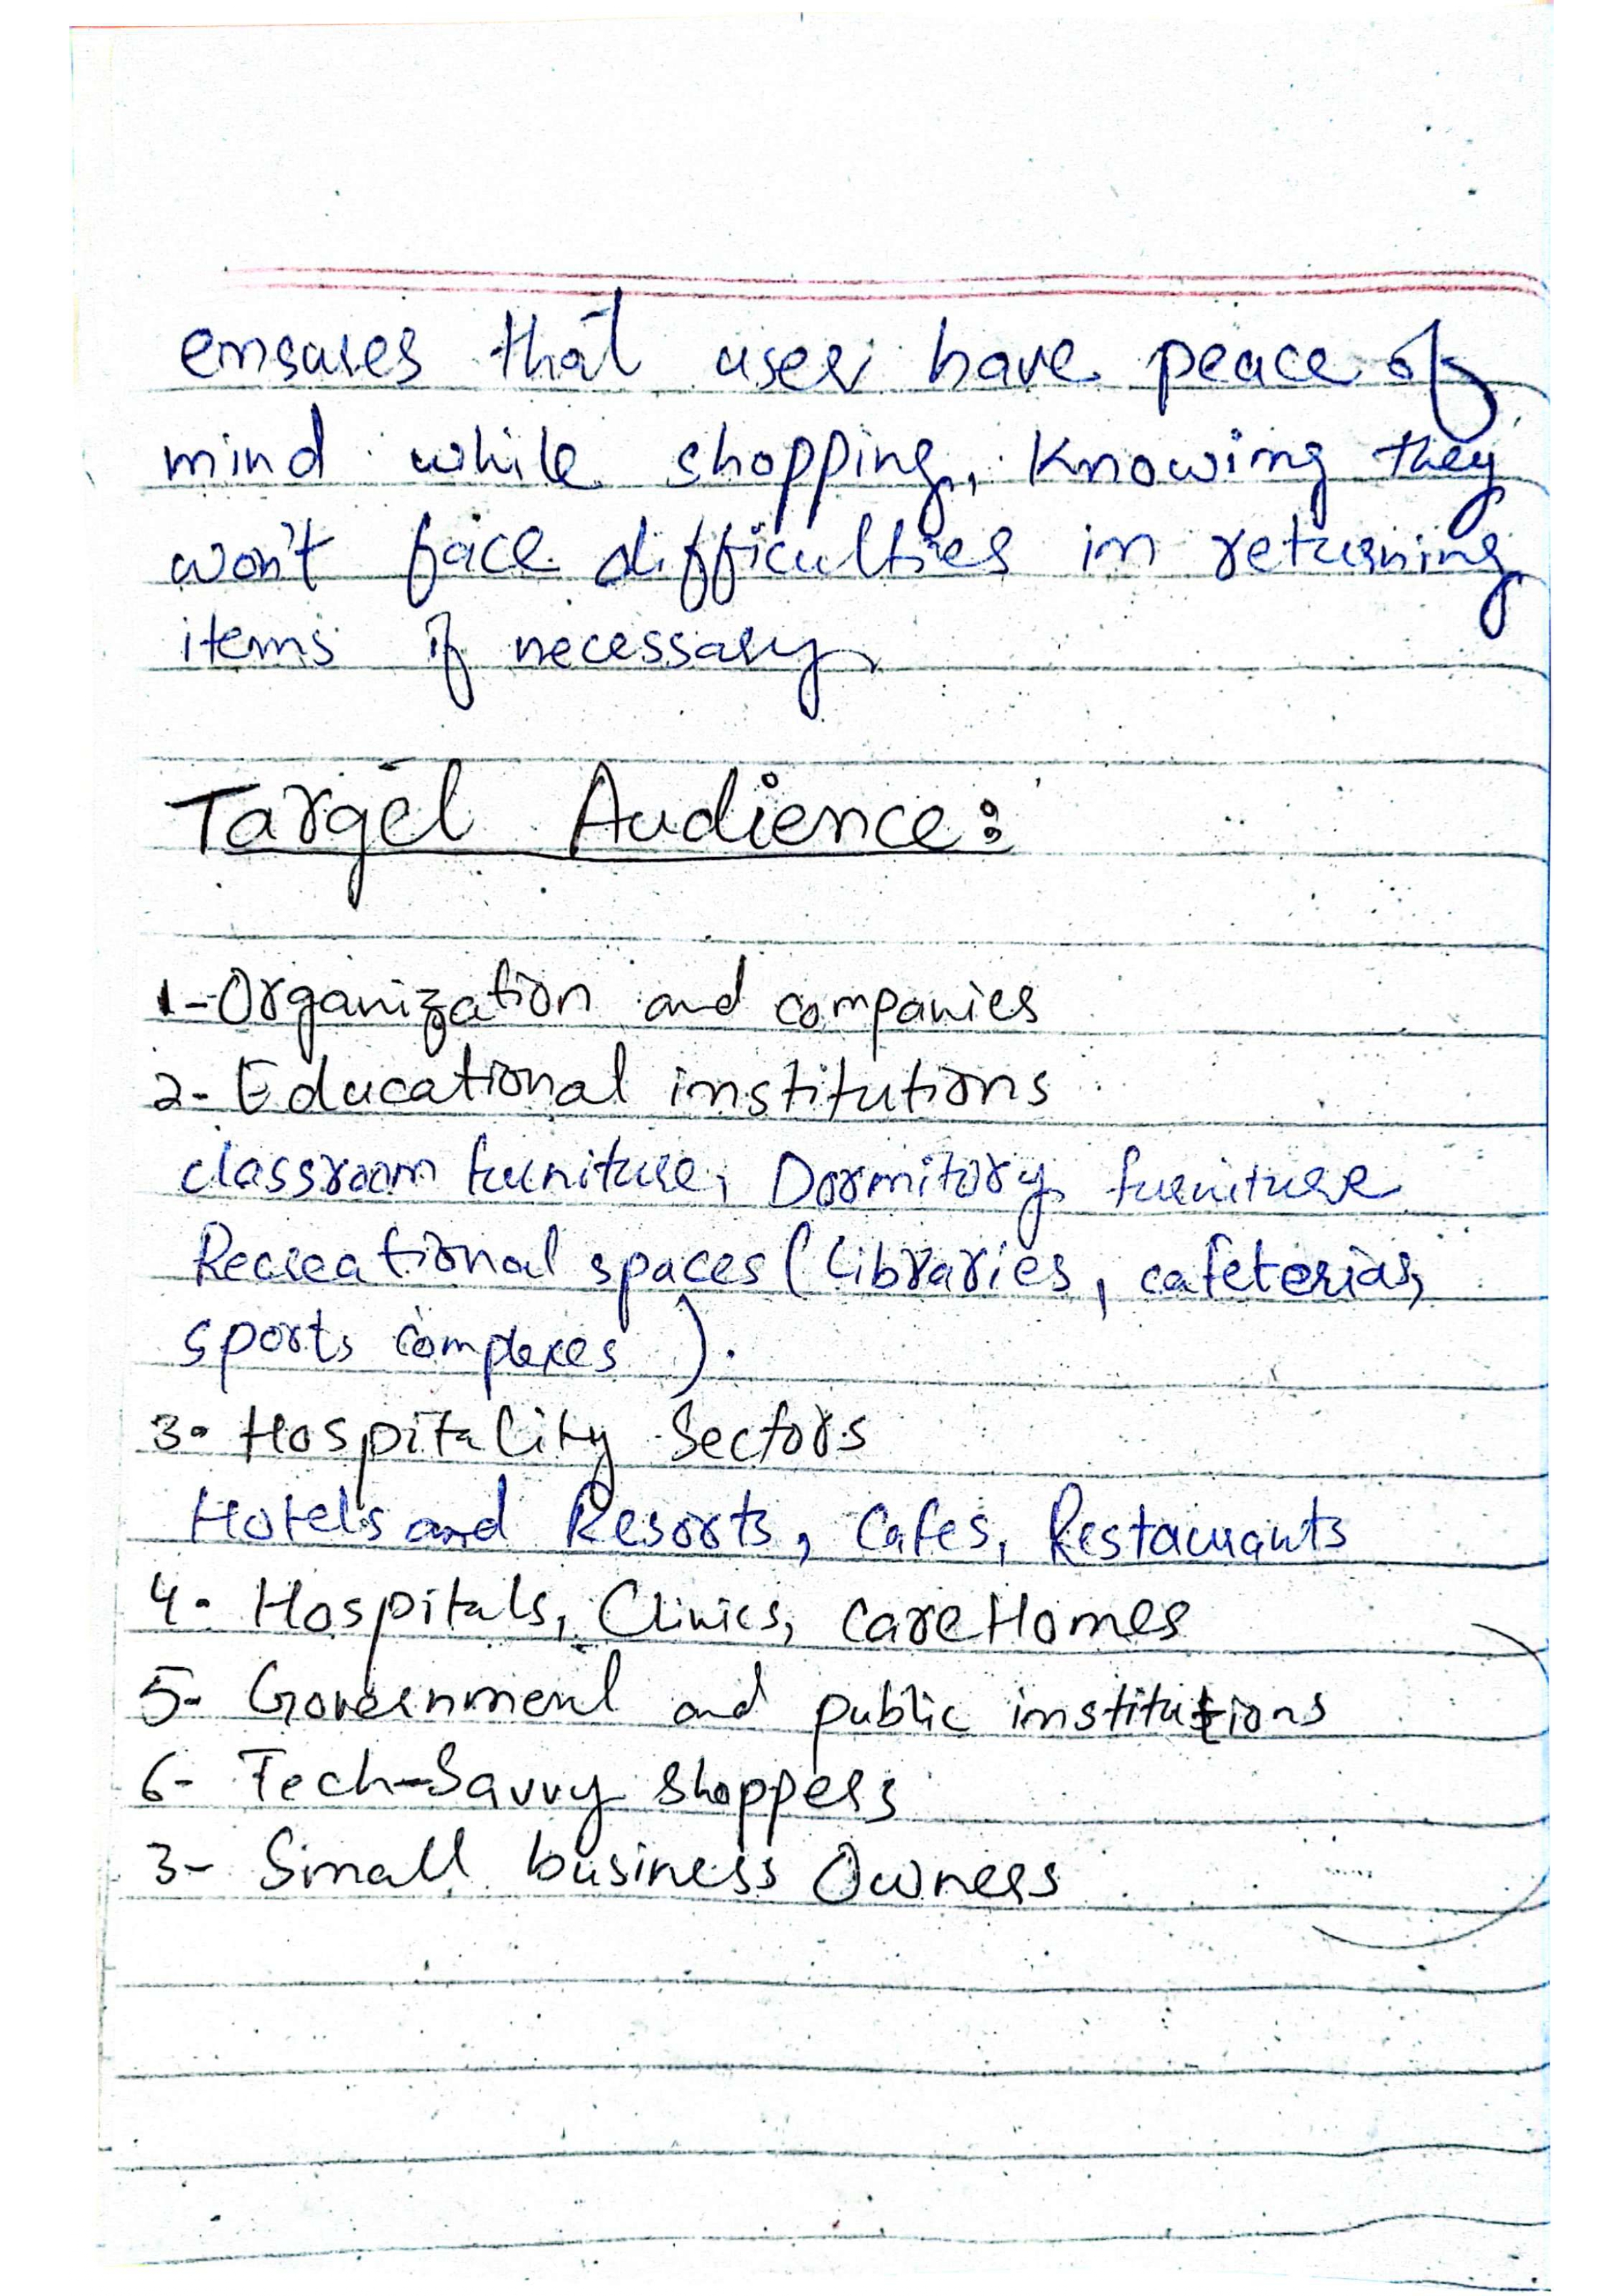 ensures that user have peace of
mind while shopping, Knowing they
won't face difficulties in returning
items if necessary
Target Audience:
1-Organization and companies
2- Educational institutions
classroom furniture, Dormitory furniture
Recreational spaces (Libraries, cafeterias,
sports complexes).
3- Hospitality Sectors
Hotels and Resorts, Cafes, Restaurants
4- Hospitals, Clinics, CareHomes
5- Government and public institutions
6- Tech-Savvy shoppers
3- Small business Owners